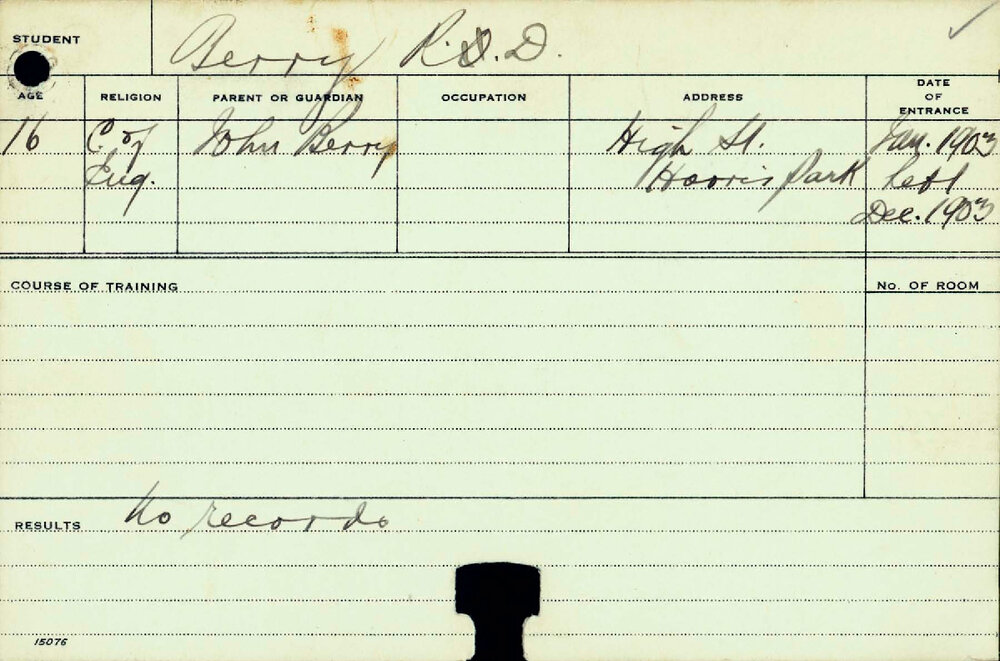 STUDENT Berry R.S.D.
AGE RELIGION PARENT OR GUARDIAN OCCUPATION ADDRESS DATE OF ENTRANCE
16 C. of John Berry High St. Jan. 1903
Eng. Harris Park left
Dec. 1903
COURSE OF TRAINING No. OF ROOM
RESULTS No records
15076